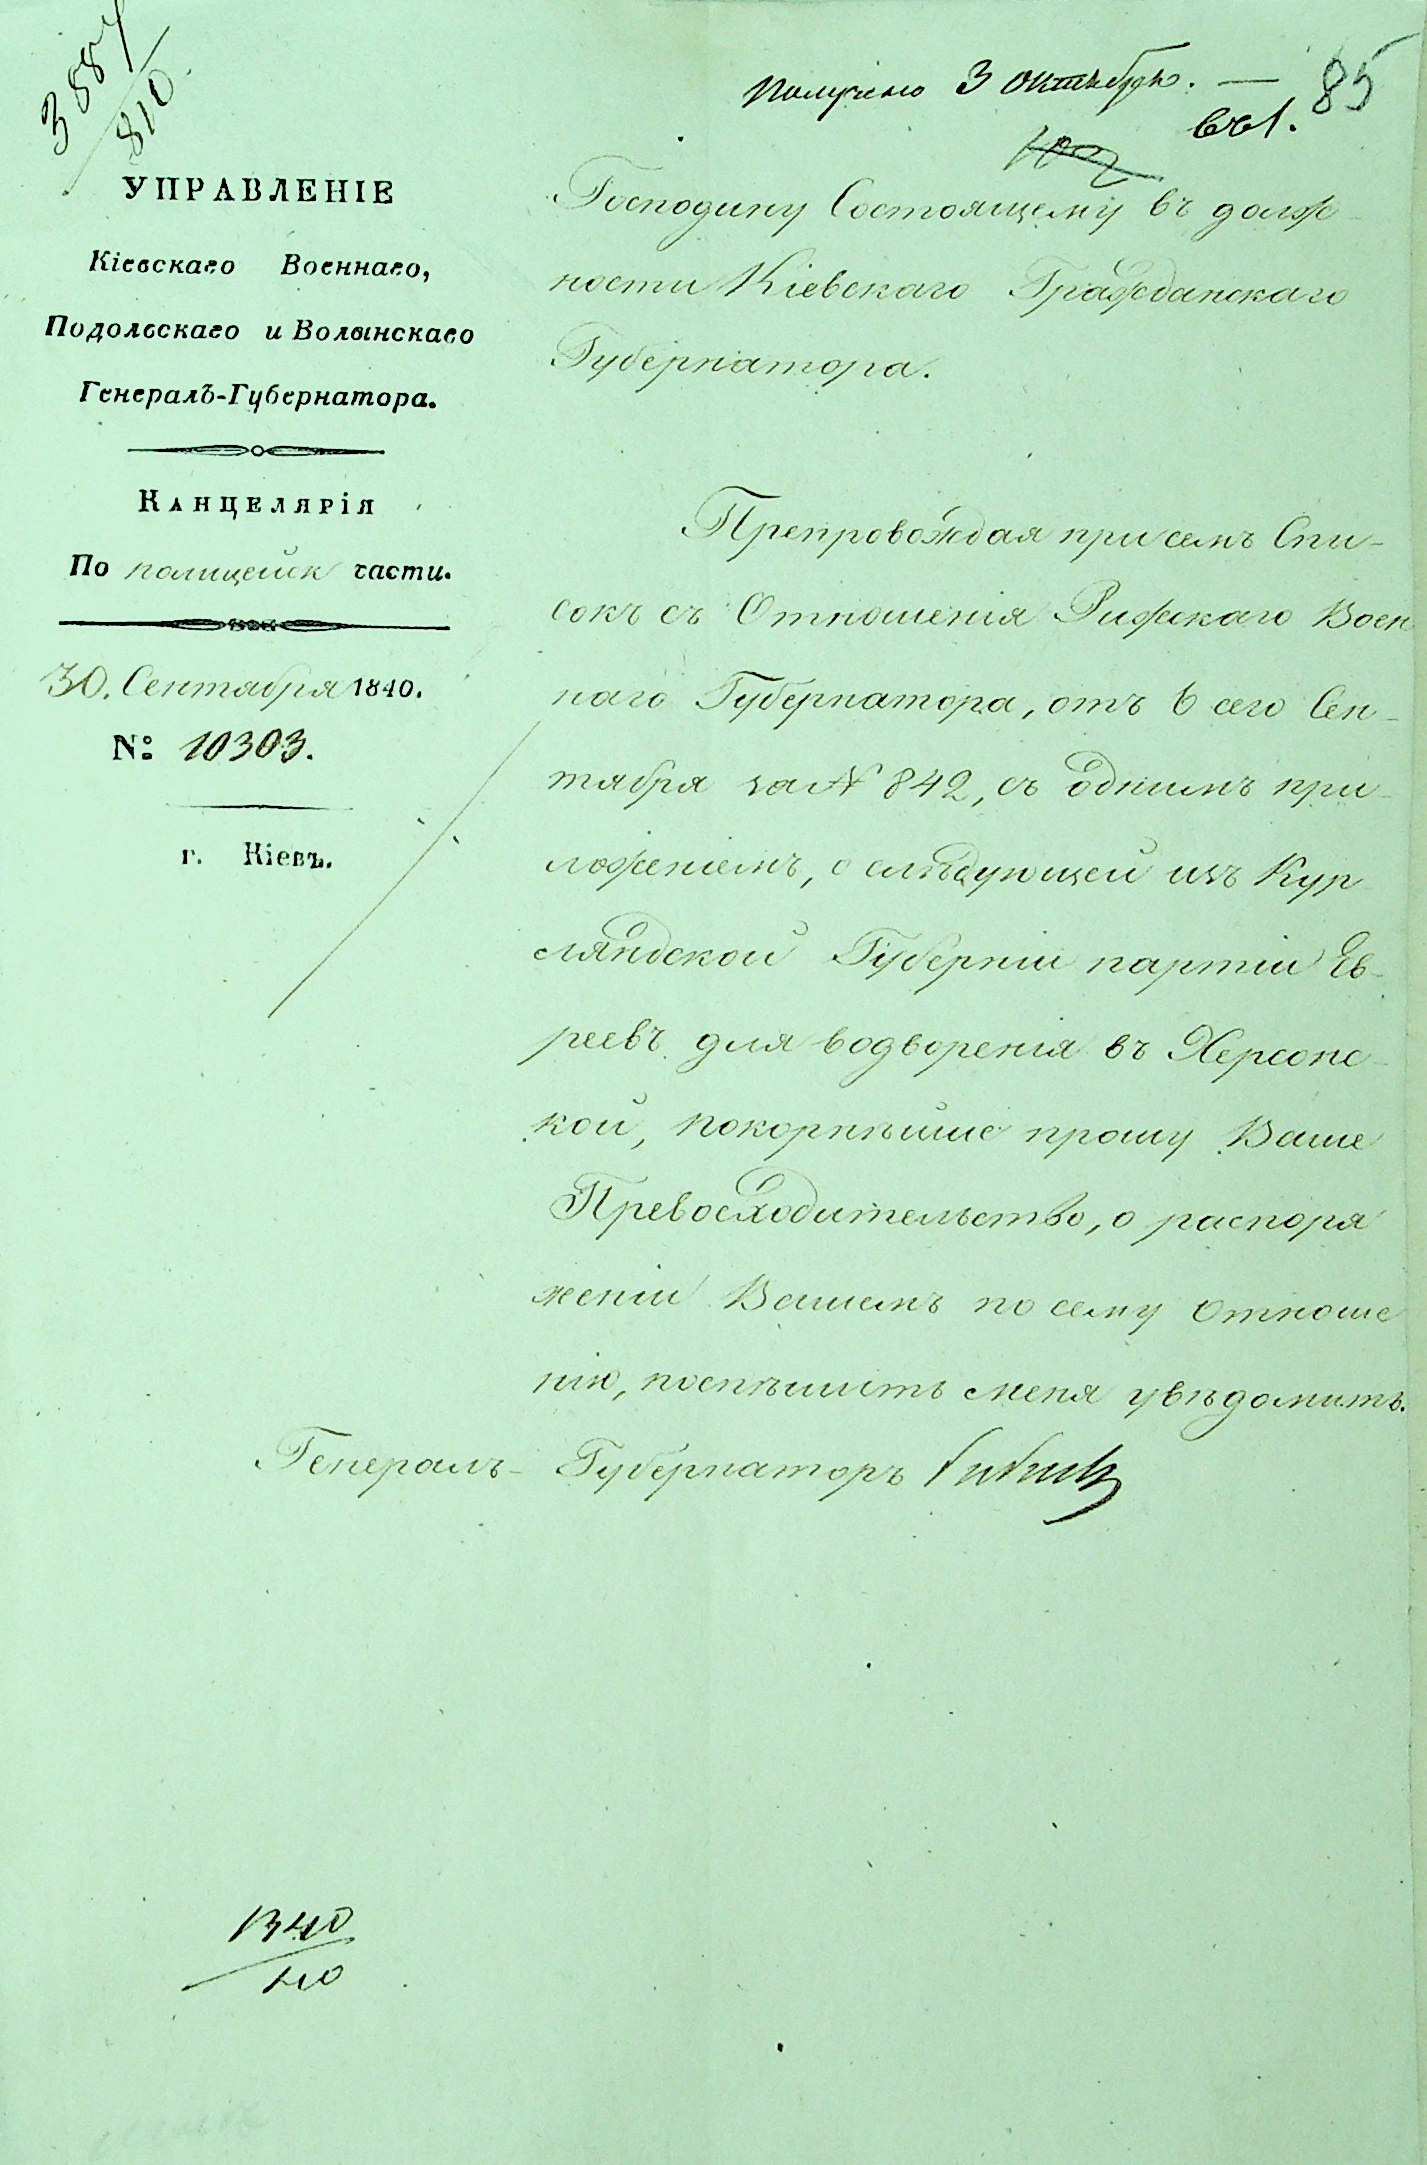 3887
810.
Получено 3 Октября. — 85
УПРАВЛЕНІЕ
Кіевскаго Военнаго,
Подольскаго и Волынскаго
Генералъ-Губернатора.
Канцелярія
По полицейск части.
30. Сентября 1840.
№ 10303.
г. Кіевъ.
Господину Состоящему въ долж-
ности Кіевскаго Гражданскаго
Губернатора.
Препровождая при семъ Спи-
сокъ съ Отношенія Рижскаго Воен
наго Губернатора, отъ 6 сего Сен-
тября за № 842, съ однимъ при-
ложеніемъ, о слѣдующей изъ Кур-
ляндской Губерніи партіи Ев-
реевъ для водворенія въ Херсонс-
кой, покорнѣйше прошу Ваше
Превосходительство, о распоря
женіи Вашемъ по сему Отноше
нію, поспѣшить меня увѣдомить.
Генералъ-Губернаторъ Бибиковъ
1340